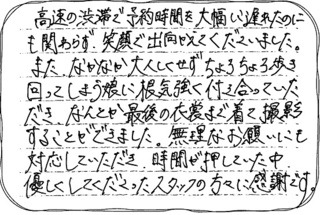 高速の渋滞で予約時間を大幅に遅れたのに
も関わらず、笑顔で出向かえてくださいました。
また、なかなか大人しくせず、ちょろちょろ歩き
回ってしまう娘に、根気強く付き合っていた
だき、なんとか最後の衣裳まで着て、撮影
することができました。無理なお願いにも
対応していただき、時間が押していた中、
優しくしてくださったスタッフの方々に感謝です。